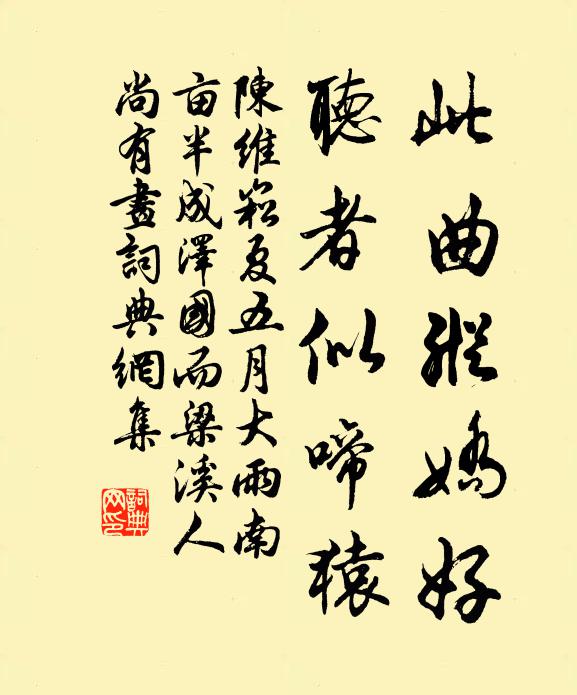 此曲縱嬌好
聽者似啼猿
陳維崧夏五月大雨南
亩半成澤國而梁溪人
尚有畫詞典網集
詞典
网印